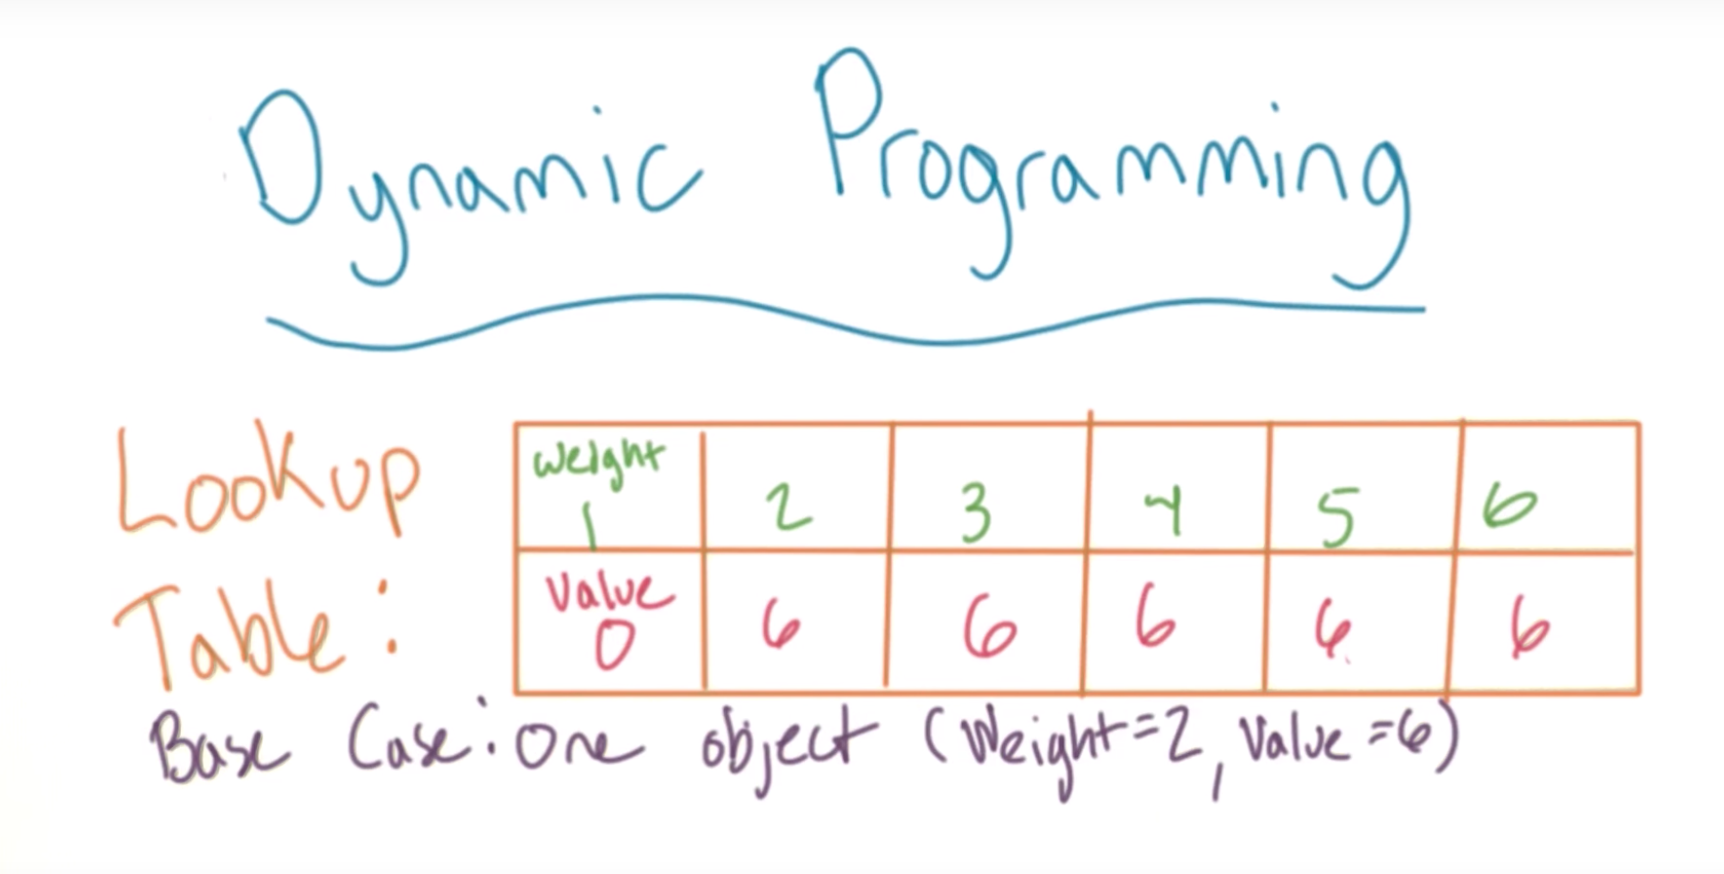 Dynamic Programming
Lookup
Table:
weight
1 2 3 4 5 6
value
0 6 6 6 6 6
Base Case: one object (Weight=2, Value=6)